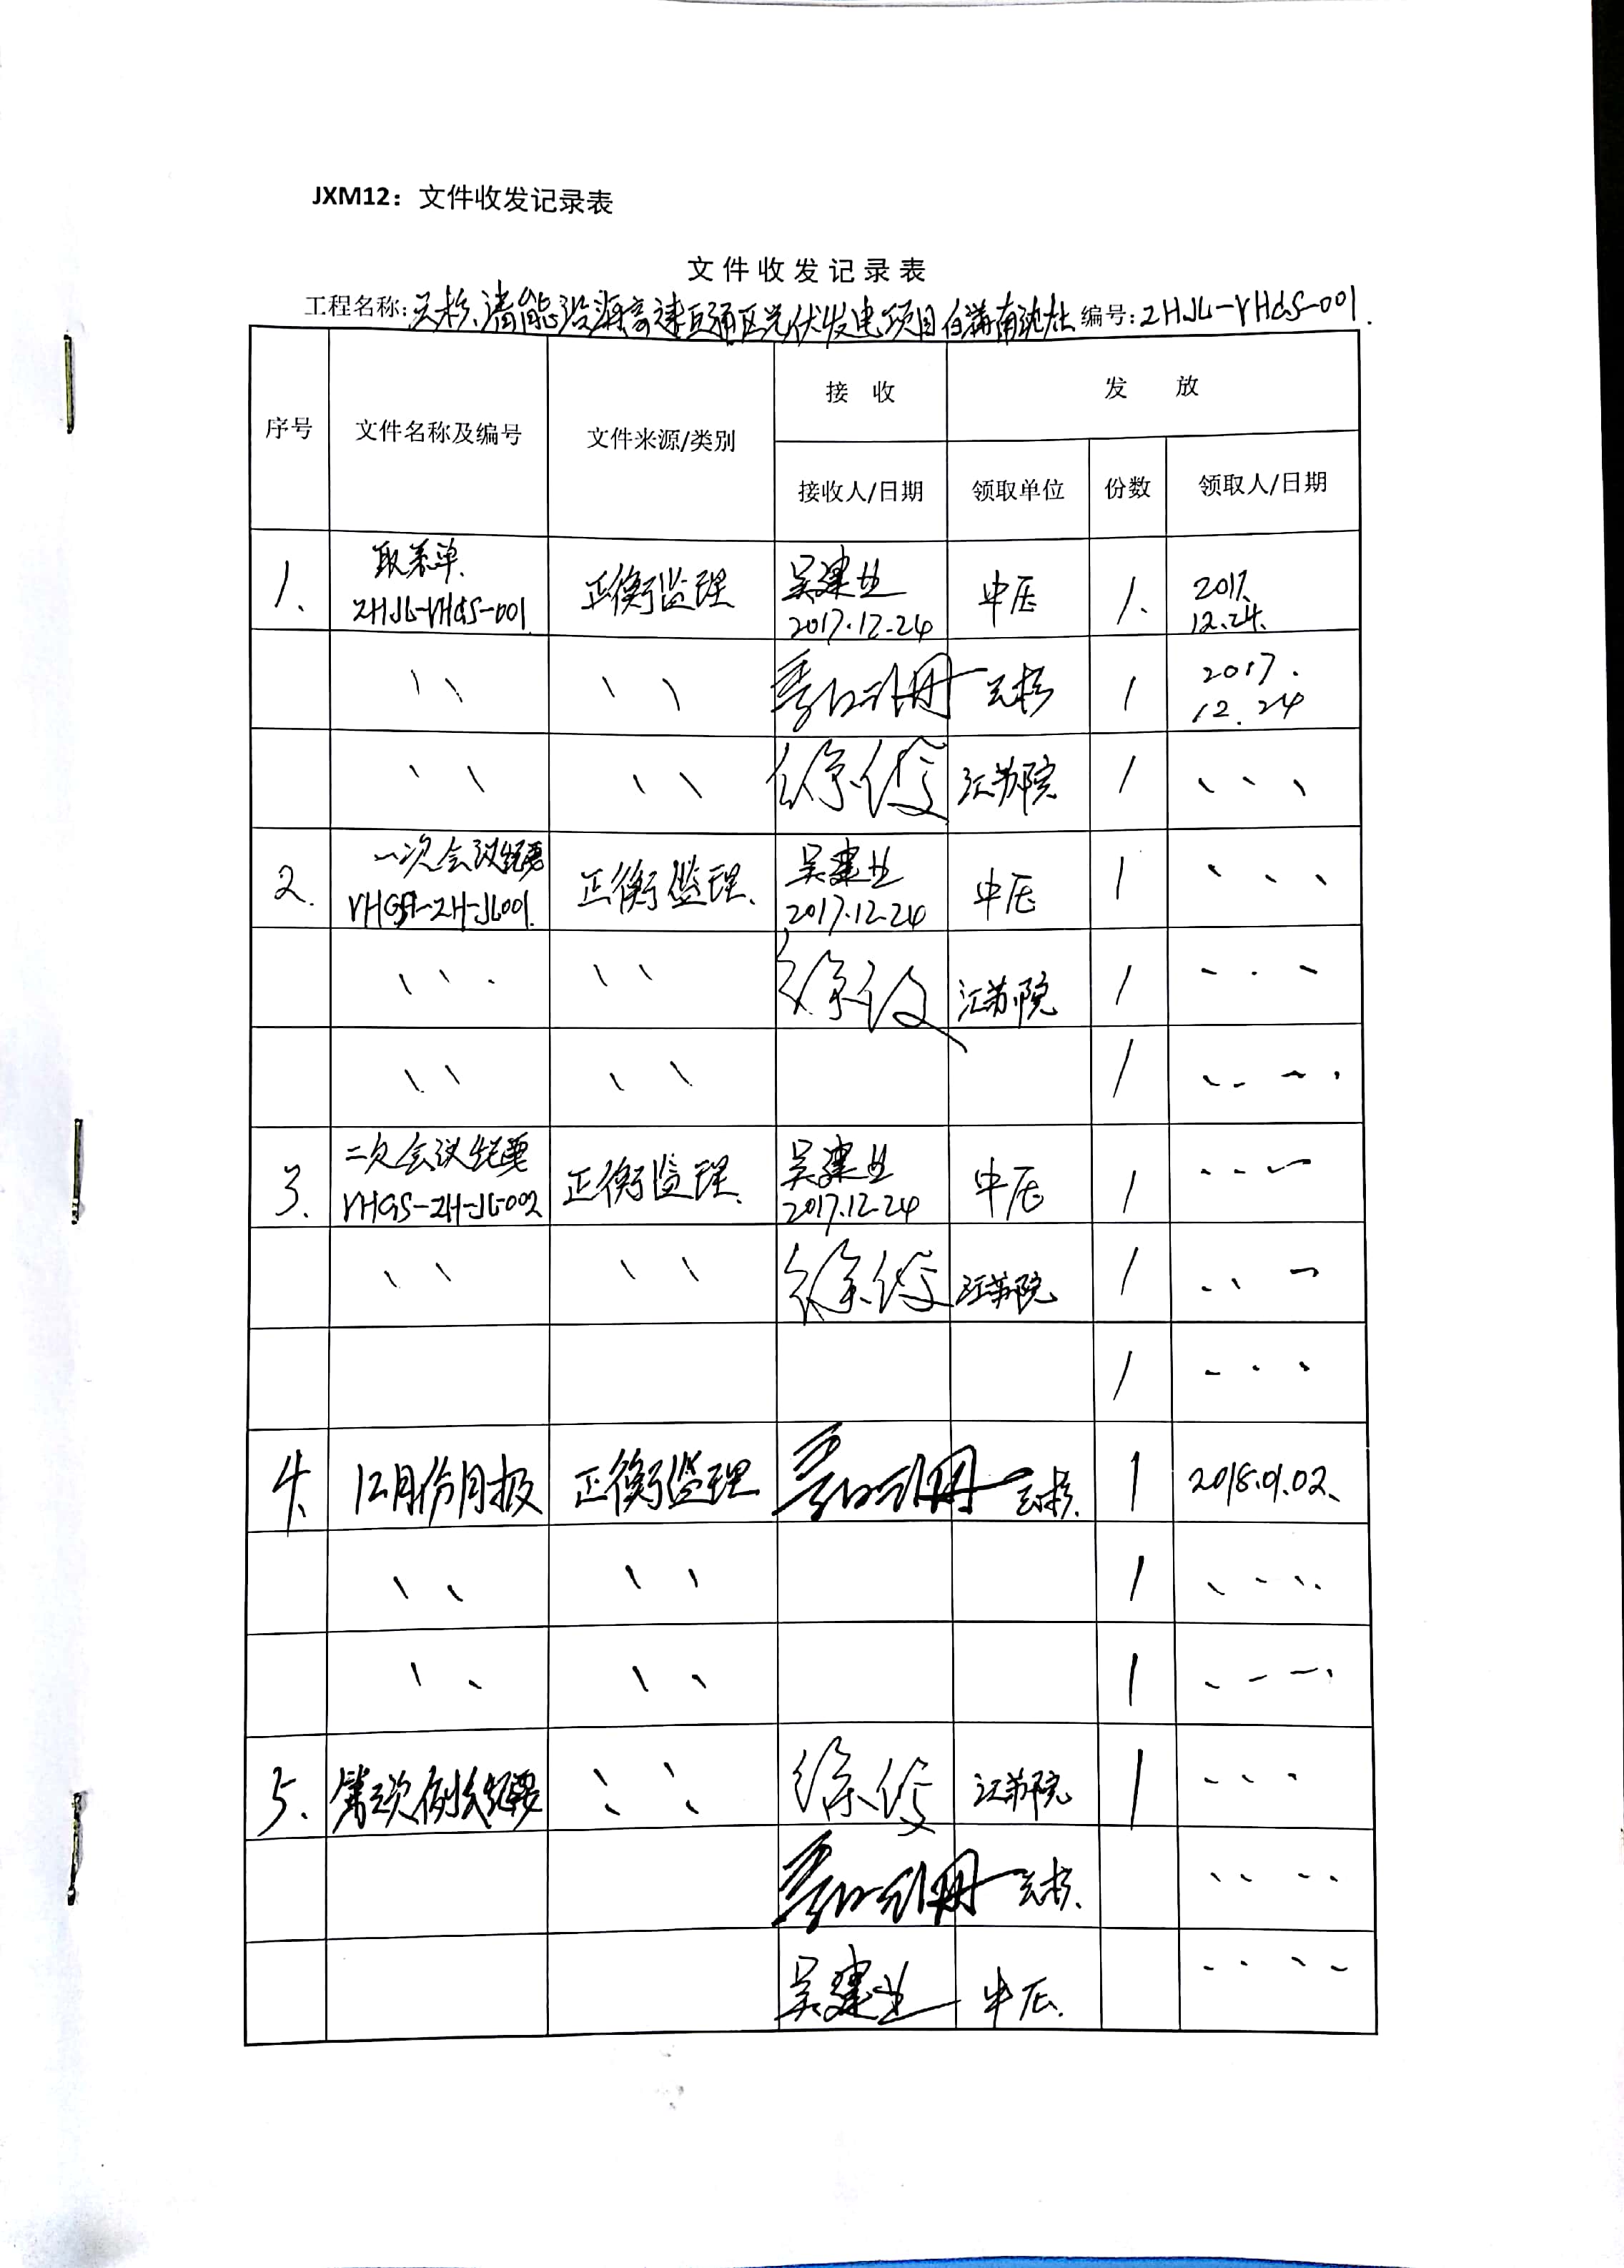 JXM12：文件收发记录表
文件收发记录表
工程名称: 清能沿海高速互通区光伏发电项目 编号: ZHJL-YHGS-001.
接 收
发 放
序号 文件名称及编号 文件来源/类别
接收人/日期 领取单位 份数 领取人/日期
1、 ZHJL-YHGS-001 正衡监理 吴建业 2017.12.24 中压 1. 2017. 12.24.
云核 1 2017. 12.24
徐俊 江苏院 1
2. 一次会议纪要 YHGS-ZH-JL001. 正衡监理、 吴建业 2017.12.24 中压 1
徐俊 江苏院 1
1
3. 二次会议纪要 YHGS-ZH-JL-002 正衡监理、 吴建业 2017.12.24 中压 1
徐俊 江苏院 1
1
4、 12月份月报 正衡监理 云核. 1 2018.01.02、
1
1
5、 第三次例会纪要 徐俊 江苏院 1
云核.
吴建业 中压.